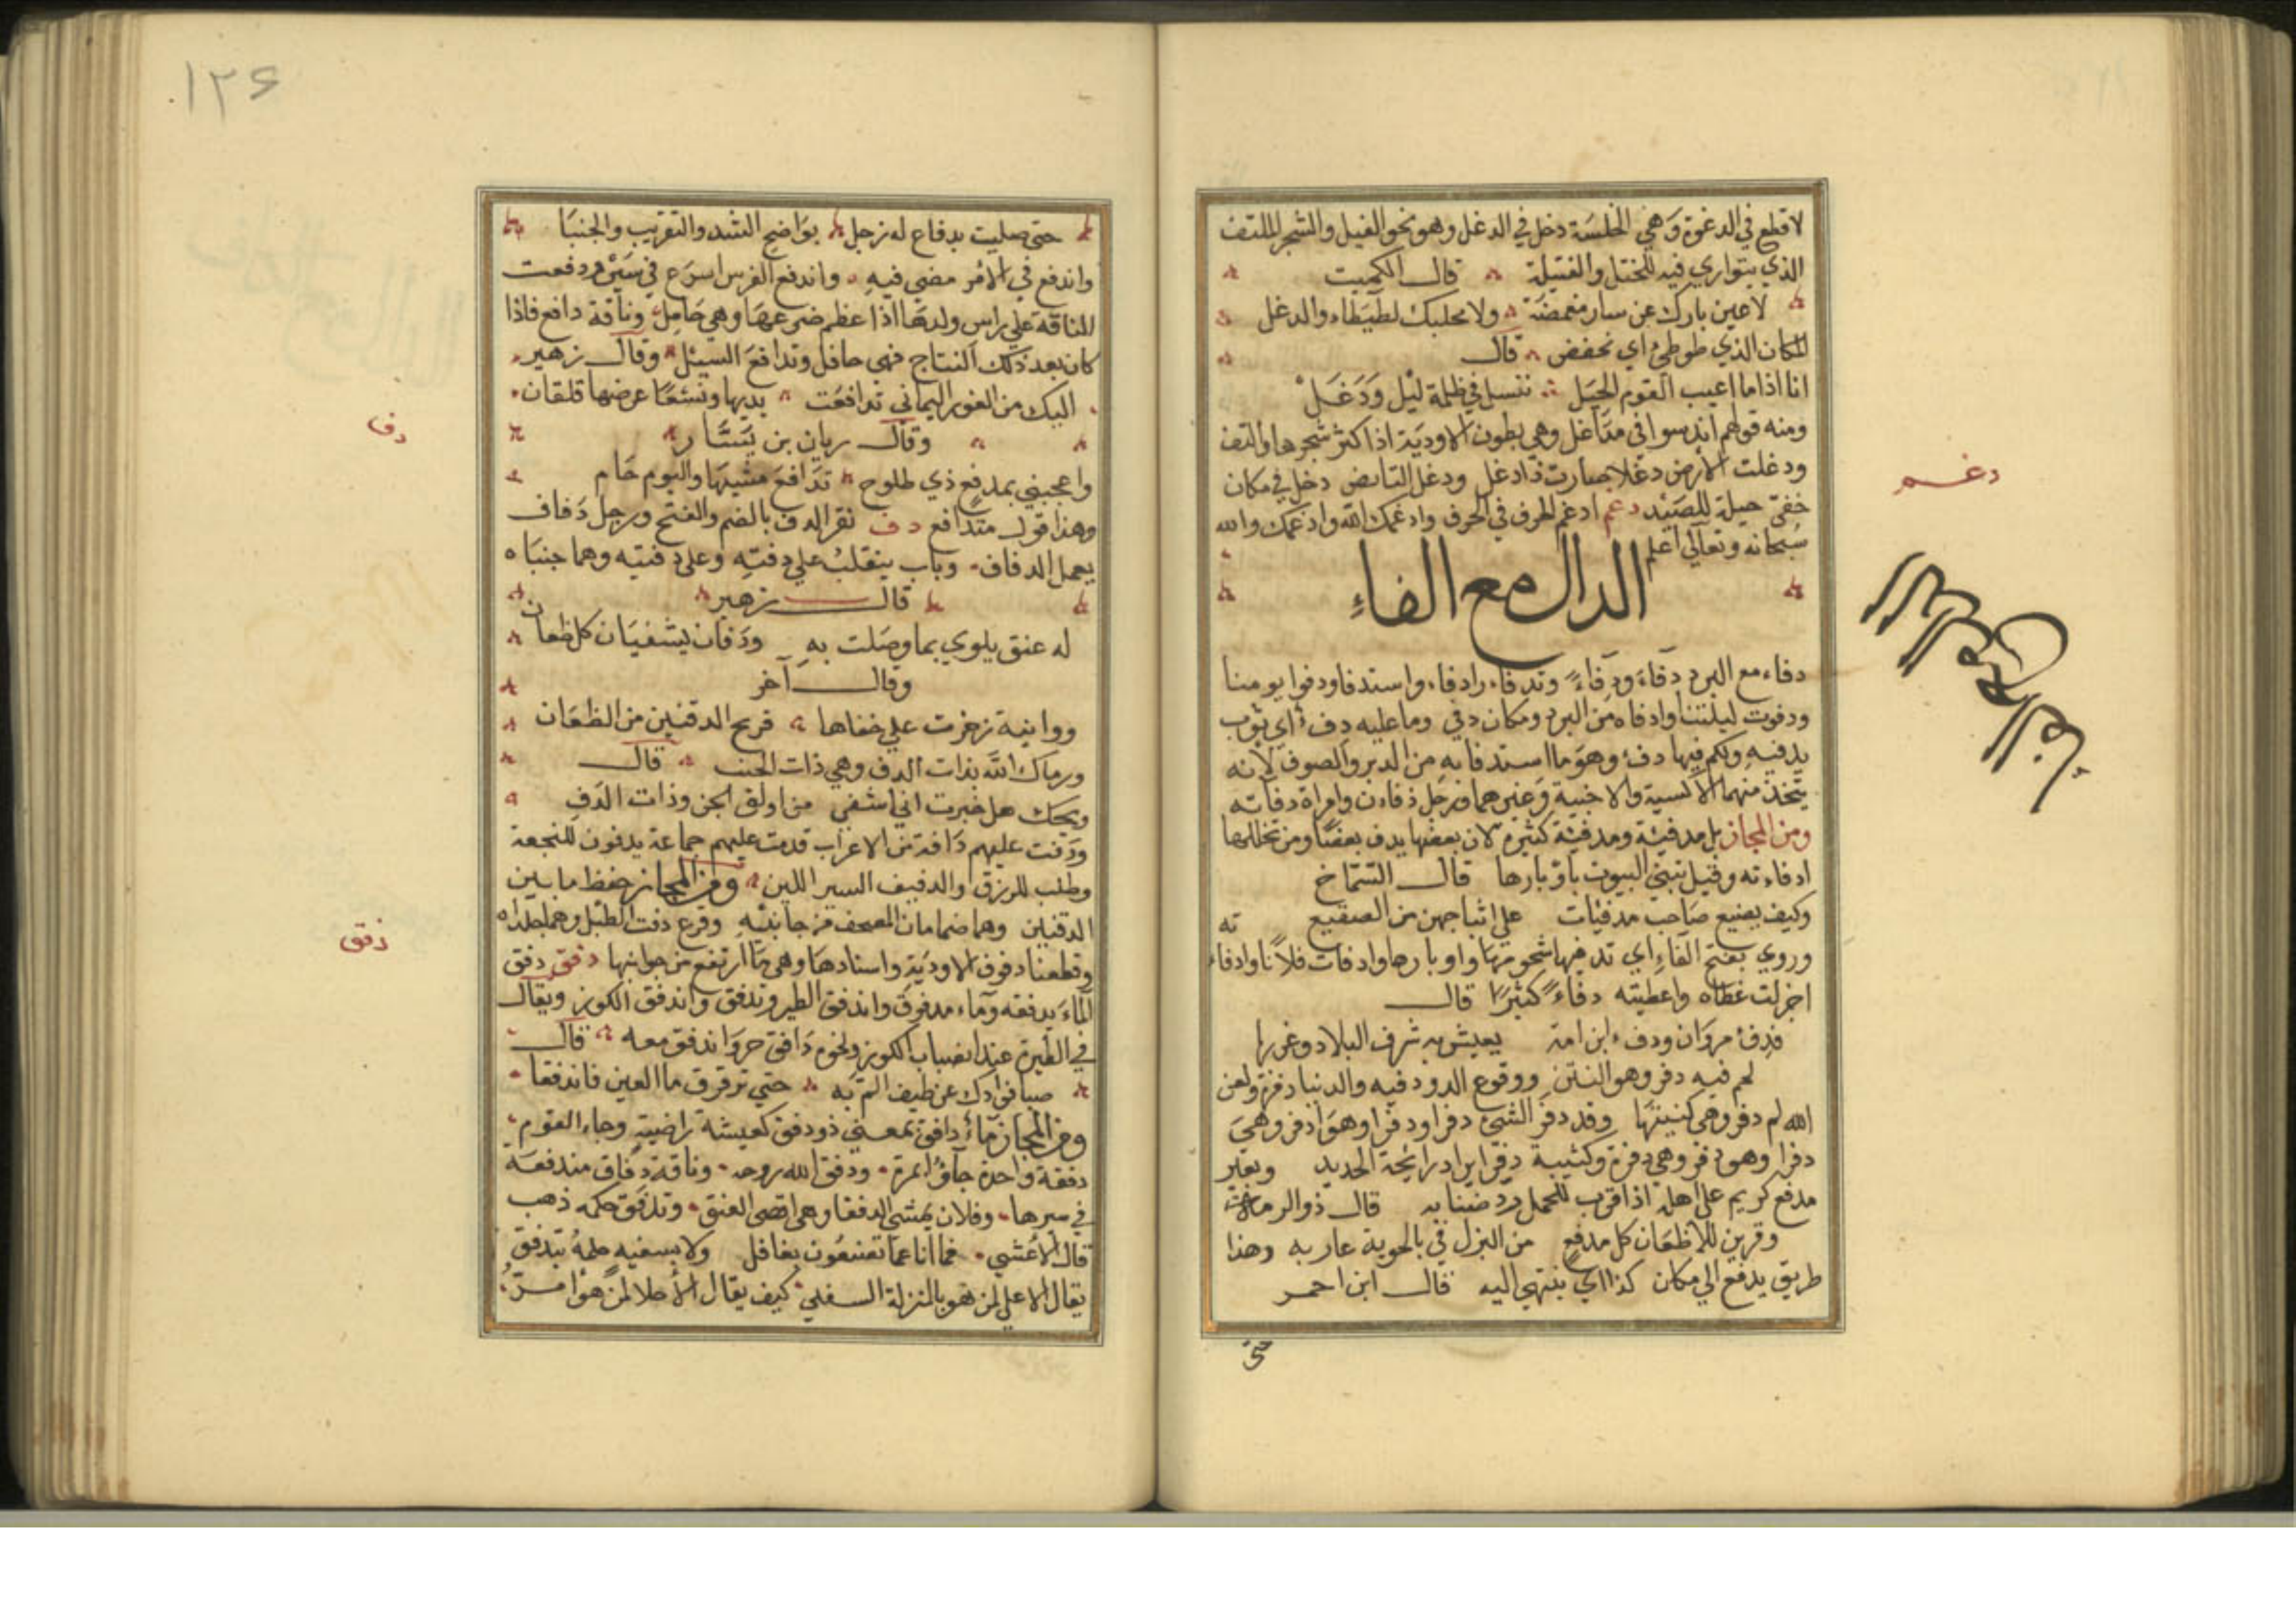 لا قطع في الدغوة وهي الخلسة دخل في الدغل وهو نحو الغيل والشجر الملتف
الذي يتواري فيه للختل والغتيلة قال الكميت
لا عين بارك عن سار مغمضة ولا محلبك لطيطاء والدغل
المكان الذي طوطئ اي نخفض قال
انا اذا ما اعيب القوم الحيل ننسل في ظلمة ليل ودغل
ومنه قولهم اندسوا في مداغل وهي بطون الاودية اذا كثر شجرها والتف
ودغلت الارض دغلا صارت ذا دغل ودغل القابض دخل في مكان
خفي حيلة للصيد دغم ادغم الحرف في الحرف وادغمك الله وادغمك والله
سبحانه وتعالي اعلم
الدال مع الفاء
دفاء مع البرد دفاء ودفاء وتدفاء وادفاء واستدفا ودفوا يومنا
ودفوت ليلتنا وادفاه من البرد ومكان دفي وما عليه دفء اي ثوب
يدفيه ولكم فيها دفء وهو ما استدفا به من الدبر والصوف لانه
يتخذ منهما الاكسية والاخبية وغيرهما ورجل دفاءن وامراة دفاته
ومن المجاز بل مدفئة ومدفئة كثيرة لان بعضها يدف بعضا ومن تخللها
ادفاءته وقيل تبني البيوت باوبارها قال الشماخ
وكيف يضيع صاحب مدفيات علي اثباجهن من الصقيع
وروي بفتح الفاء اي تدفيها شحومها واوبارها وادفات فلانا وادفاءته
اجزلت عطاه واعطيته دفاء كثيرا قال
فدفء مروان ودفء ابن امه يعيش به شرف البلاد وغربها
لحم فيه دفر وهو النتن ووقوع الدود فيه والدنيا دفرة ولعن
الله ام دفر وهي كنيتها وقد دفر الشئ دفرا ودفرا وهو ادفر وهي
دفرا وهو دفر وهي دفرة وكتيبة دفرا يراد رائحة الحديد وبعير
مدفع كريم علي اهله اذا قرب للحمل رد ضنا به قال ذو الرمة
وقربن للاظعان كل مدفع من البزل في بالحوية عاربه وهذا
طريق يدفع الي مكان كذا اي ينتهي اليه قال ابن احمر
حتي
دغم
الدال مع الفاء
۱۲۶
حتي صليت بدفاع له زجل بواضح الشد والتقريب والجنبا
واندفع في الامر مضي فيه واندفع الفرس اسرع في سيره ودفعت
الناقة علي راس ولدها اذا عظم ضرعها وهي حامل وناقة دافع فاذا
كان بعد ذلك النتاج فهي حافل وتدافع السيل وقال زهير
اليك من الغور اليماني تدافعت يديها ونسعا عرضها قلقان
وقال ريان بن يسار
واعجبني بمدفع ذي طلوح تدافع مشيها واليوم حام
وهذا قول متدافع دف نقر الدف بالضم والفتح ورجل دفاف
يعمل الدفاف وبات ينقلب علي دفته وعلي دفتيه وهما جنباه
قال زهير
له عنق يلوي بما وصلت به ودفان يشفيان كل ظعان
وقال آخر
ووانية زجرت علي حفاها قريح الدفتين من الظعان
ورماك الله بذات الدف وهي ذات الجنب قال
ويحك هل خبرت اني اشفي من اولق الجن وذات الدف
ودفت عليهم دافة من الاعراب قدمت عليهم جماعة يدفون للنجعة
وطلب للرزق والدفيف السير اللين ومن المجاز حفظ ما بين
الدفتين وهما ضمامان المصحف من جانبيه وقرع دفت الطبل وهما جلداه
وقطعنا دفوف الاودية واسنادها وهي ما ارتفع من جوانبها دفق دفق
الماء يدفقه وماء مدفوق واندفق الطير وتدفق واندفق الكوز ويقال
في الطيرة عند انصباب الكوز ولخوه دافق حر واندفق معه قال
صبا فوادك عن طيف الم به حتي ترقرق ما العين فاندفقا
ومن المجاز ماء دافق بمعني ذو دفق كعيشة راضية وجاء القوم
دفقة واحدة جاؤا بمرة ودفق الله روحه وناقة دفاق مندفعة
في سيرها وفلان يمشي الدفقا وهي اقصي العنق وتدفق حكمه ذهب
قال الاعشي فما انا عما تصنعون بغافل ولا بسفيه حلمه يتدفق
يقال الاعلي لمن هو بالمنزلة السفلي كيف يقال الاحلا لمن هوا مر
دف
دفق